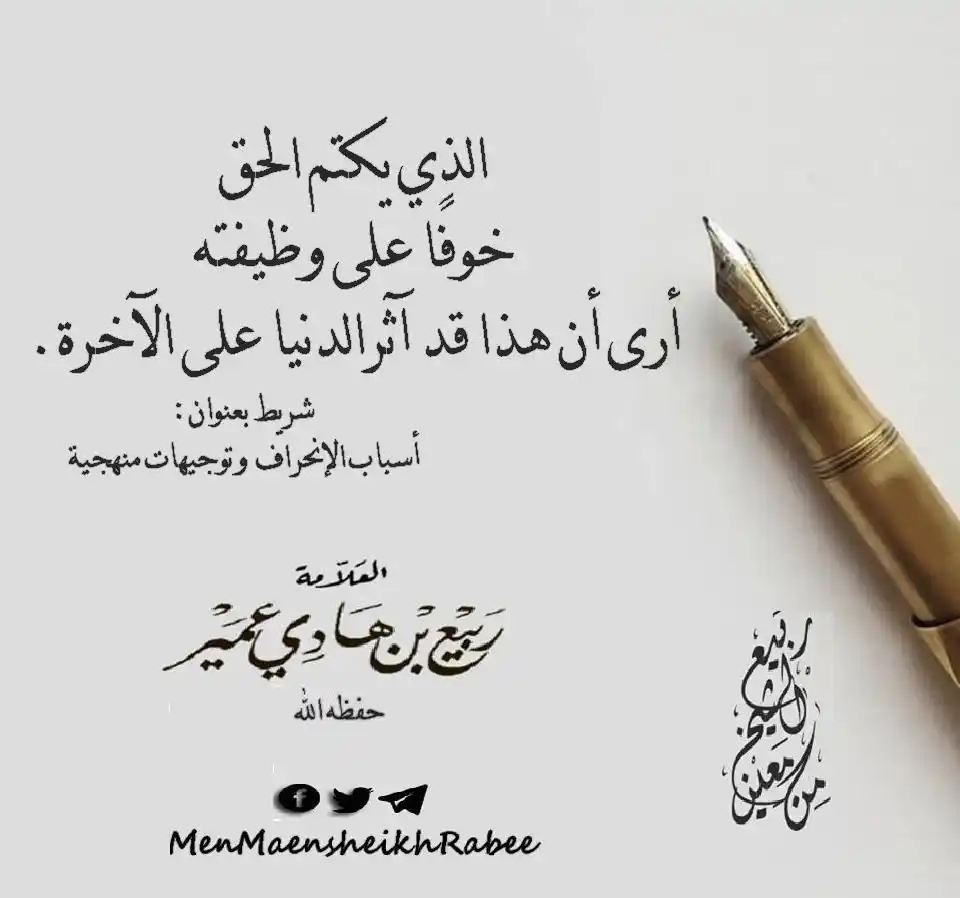 الذي يكتم الحق
خوفًا على وظيفته
أرى أن هذا قد آثر الدنيا على الآخرة.
شريط بعنوان:
أسباب الإنحراف وتوجيهات منهجية
العلّامة
رَبِيْع بْن هَادِي عمَيْر
حفظه الله
MenMaensheikhRabee
مِن مَعين الشيخ ربيع